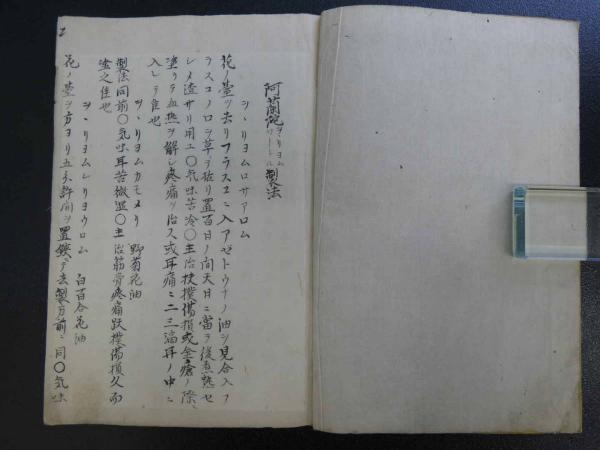 阿蘭陀ヲリヨムワートル製法
ヲヽリヨムロサアロム
花ノ蕚ヲ去リフラスコニ入アゼトウナノ油ヲ見合入フ
ラスコノロヲ草ニテ拵リ置百日ノ間天日ニ當テ後煮熟セ
シメ渣サリ用ユ〇気味苦冷〇主治扶撲傷損或金瘡ノ際
塗リテ血熱ヲ解シ疼痛ヲ治ス或耳痛ニ二三滴耳ノ中ニ
入レテ佳也
ヲヽリヨムカモメリ 野菊花油
製法同前〇気味耳苦微温〇主治筋骨疼痛跌撲傷損久ク
塗之佳也
ヲヽリヨムレリヨウロム 白百合花油
花ノ蕚ヲ方ヨリ五分許間ヲ置鋏ミテ去製方前ニ同〇気味